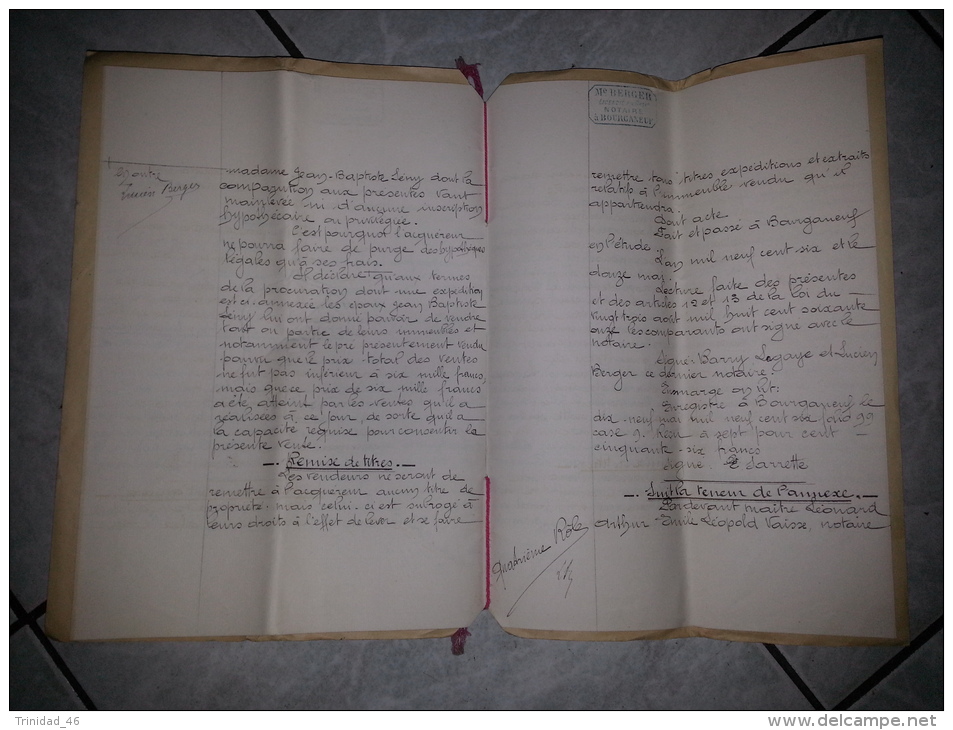 contre
Lucien Berger
madame Jean-Baptiste Leny dont la
comparution aux présentes vaut
mainlevée ni d'aucune inscription
hypothécaire ou privilégiée.
C'est pourquoi l'acquéreur
ne pourra faire de purge des hypothèques
légales qu'à ses frais.
Il déclare qu'aux termes
de la procuration dont une expédition
est ci-annexée les époux Jean Baptiste
Leny lui ont donné pouvoir de vendre
tout ou partie de leurs immeubles et
notamment celui présentement vendu
pourvu que le prix total des ventes
ne fut pas inférieur à six mille francs,
mais que ce prix de six mille francs
a été atteint par les ventes qu'il a
réalisées à ce jour, de sorte qu'il a
la capacité requise pour consentir la
présente vente.
Remise de titres.
Les vendeurs ne seront de
remettre à l'acquéreur aucun titre de
propriété. mais celui-ci est subrogé à
leurs droits à l'effet de lever et se faire
Me BERGER
NOTAIRE
à BOURGANEUF
remettre tous titres expéditions et extraits
relatifs à l'immeuble vendu qu'il
appartiendra
Dont acte
Fait et passé à Bourganeuf
en l'étude.
L'an mil neuf cent six et le
douze mai.
Lecture faite des présentes
et des articles 12 et 13 de la loi du
vingt trois août mil huit cent soixante
onze les comparants ont signé avec le
notaire.
Signé: Barry Legaye et Lucien
Berger ce dernier notaire.
En marge on lit:
Enregistré à Bourganeuf le
dix-neuf mai mil neuf cent six folio 99
case 9. Reçu à sept pour cent
cinquante-six francs
Signé. Sarrette
Suit la teneur de l'annexe.
Pardevant maître Léonard
Arthur Emile Léopold Vaisse, notaire
quatrième Rôle
Trinidad_46
www.delcampe.net